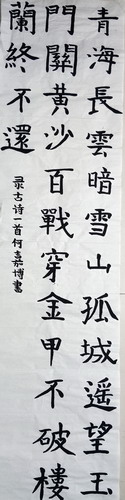 青海長雲暗雪山孤城遥望玉
門關黄沙百戰穿金甲不破樓
蘭終不還
录古诗一首何嘉博書